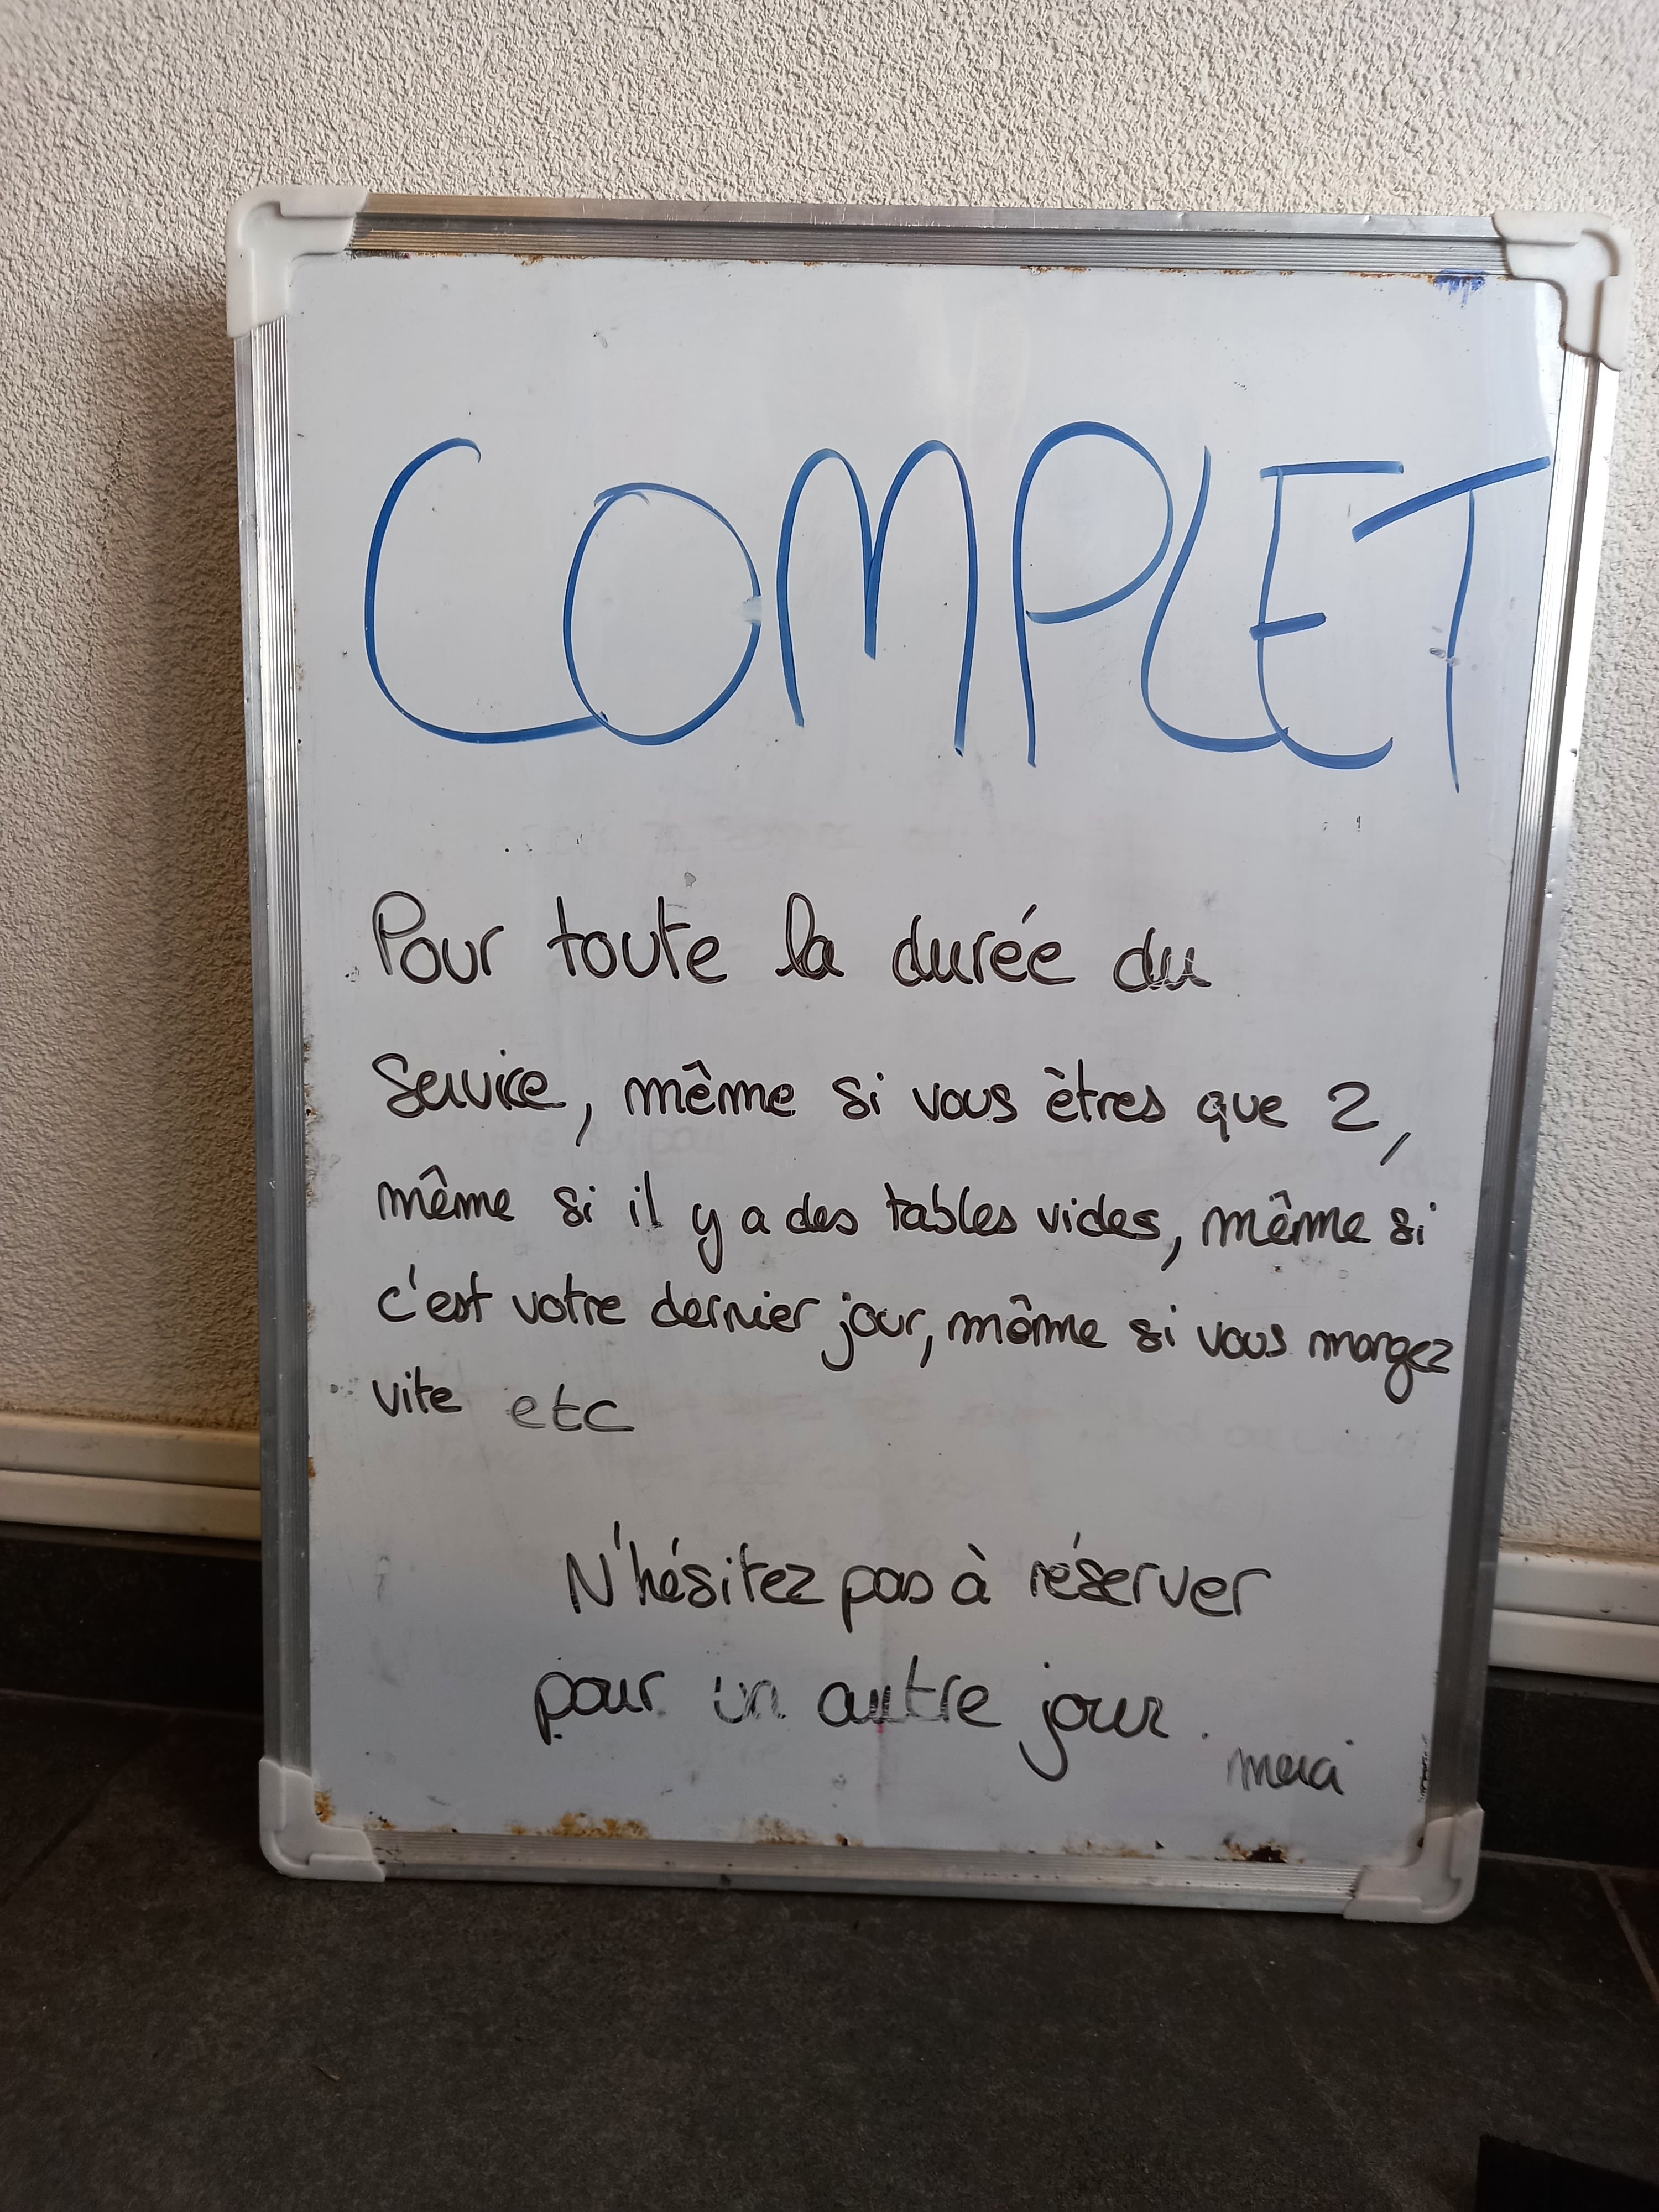 COMPLET
Pour toute la durée du
Service, même si vous ètres que 2,
même si il y a des tables vides, même si
c'est votre dernier jour, même si vous mangez
vite etc
N'hésitez pas à réserver
pour un autre jour.
merci